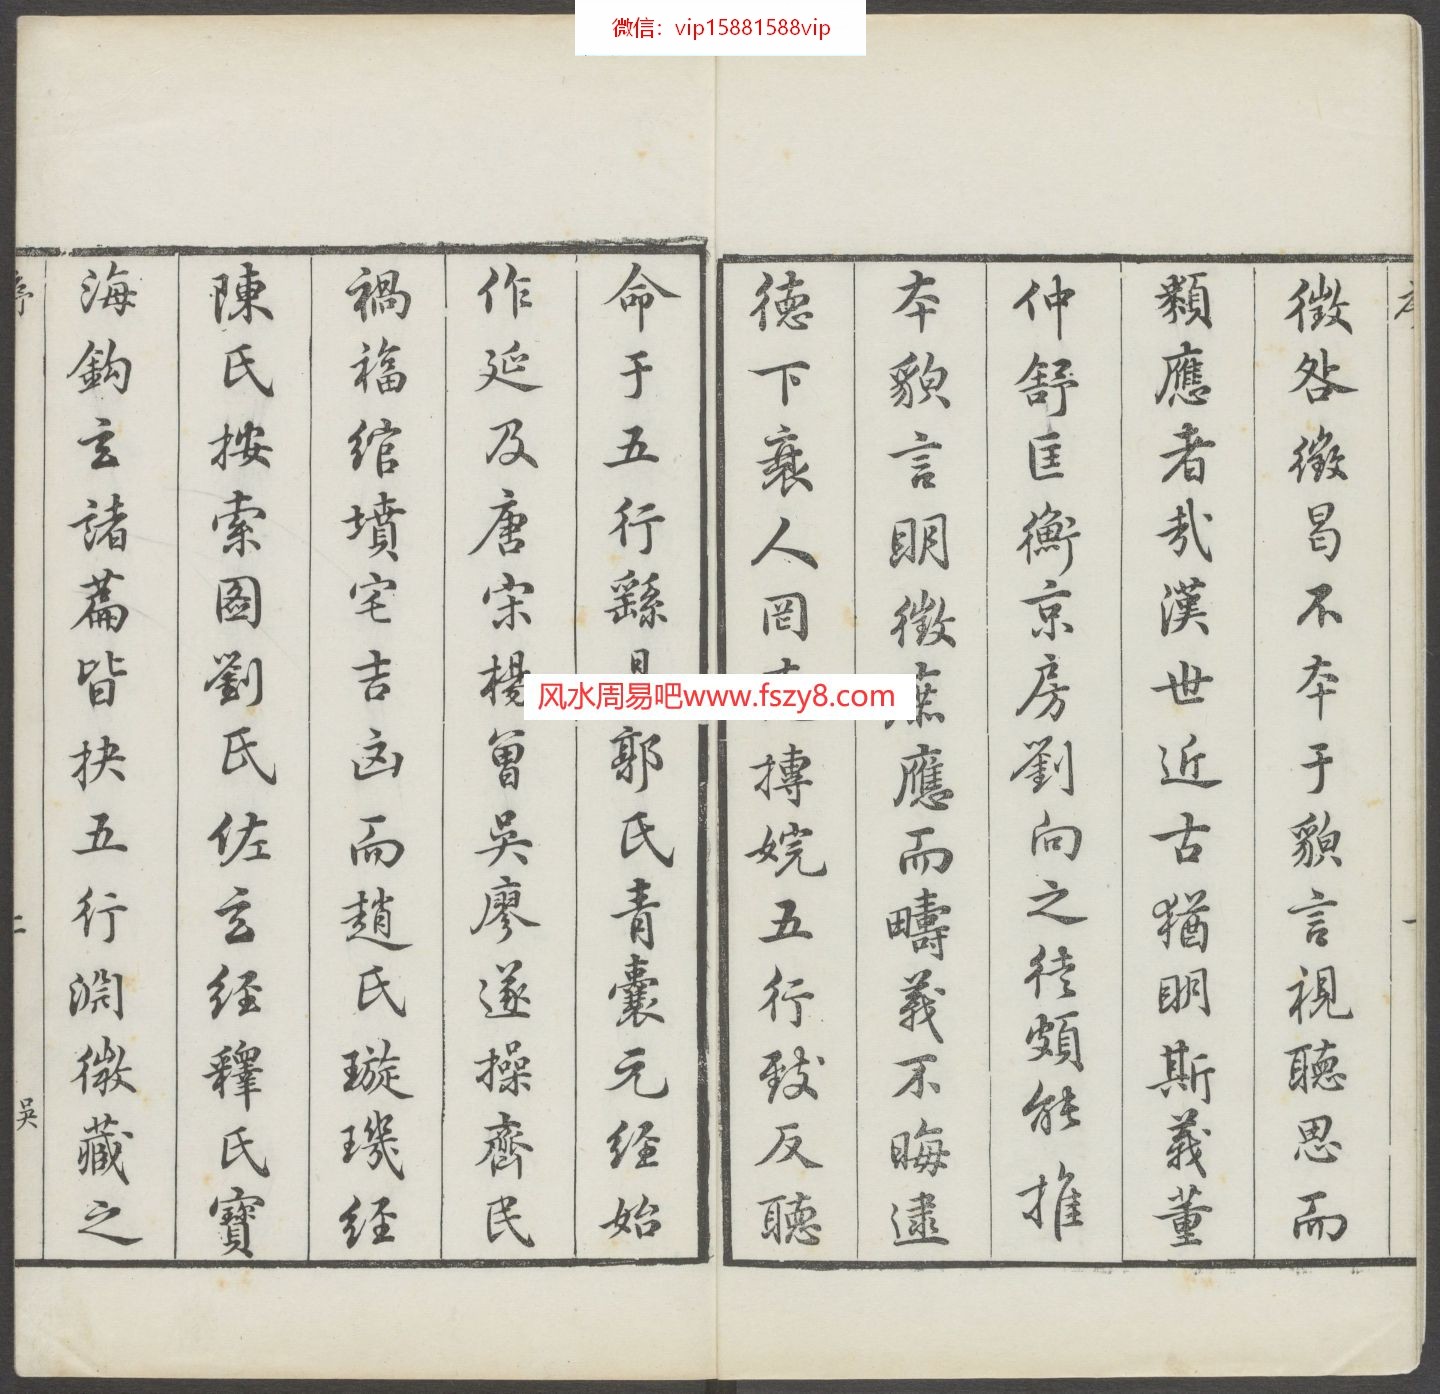 微信：vip15881588vip
徵咎徵曷不本于貌言視聽思而
類應者哉漢世近古猶明斯義董
仲舒匡衡京房劉向之徒頗能推
本貌言明徵庶應而疇義不晦逮
德下衰人罔摶婉五行致反聽
命于五行繇郭氏青囊元經始
作延及唐宋楊曾吳廖遂操齊民
禍福綰墳宅吉凶而趙氏璇璣經
陳氏按索圖劉氏佐玄經釋氏寶
海鈎玄諸篇皆抉五行淵微藏之
風水周易吧www.fszy8.com
序
二
吳